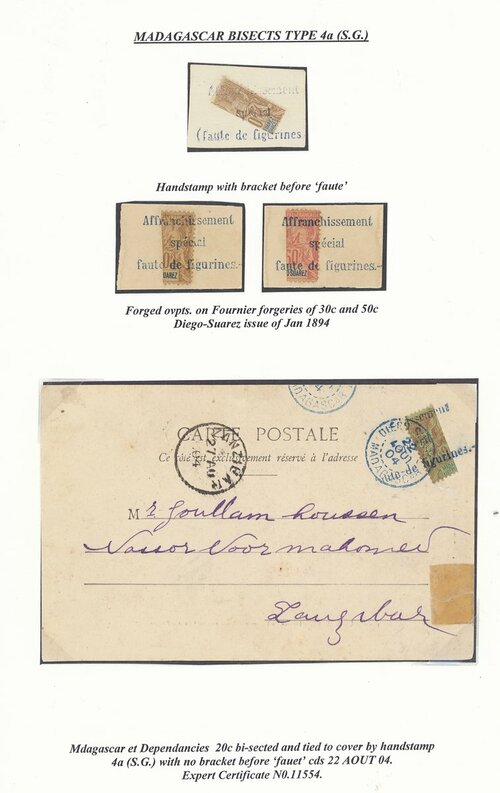 MADAGASCAR BISECTS TYPE 4a (S.G.)
Affranchissement
spécial
(faute de figurines
Handstamp with bracket before ‘faute’
Affranchissement
spécial
faute de figurines.-
UAREZ
Affranchissement
spécial
faute de figurines.-
SUAREZ
Forged ovpts. on Fournier forgeries of 30c and 50c
Diego-Suarez issue of Jan 1894
MADAGASCAR
CARTE POSTALE
Ce côté est exclusivement réservé à l'adresse
ZANZIBAR
04
DIEGO
22
AOUT
04
MADAGASCAR
ssement
ute de figurines.-
Mr Goullam houssen
Nassor Noormahomed
Zangibar
Mdagascar et Dependancies 20c bi-sected and tied to cover by handstamp
4a (S.G.) with no bracket before ‘fauet’ cds 22 AOUT 04.
Expert Certificate N0.11554.